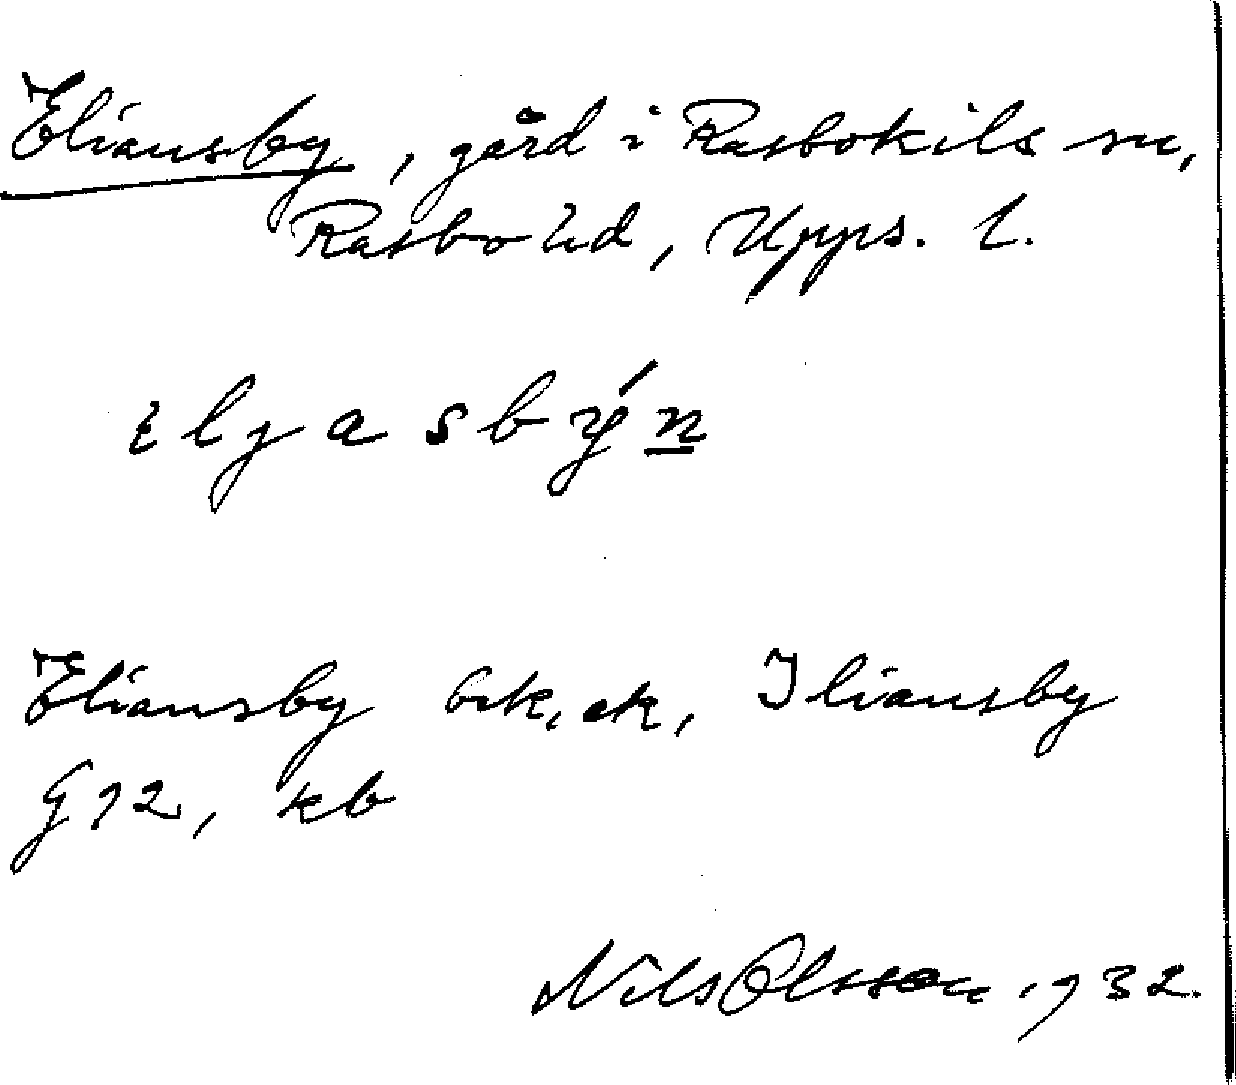 Eliansby, gård i Rasbokils sn,
Rasbo hd, Upps. l.
ɛljasbýn
Eliansby brk, ek, Iliansby
G 12, kb
Nils Olsson 1932.